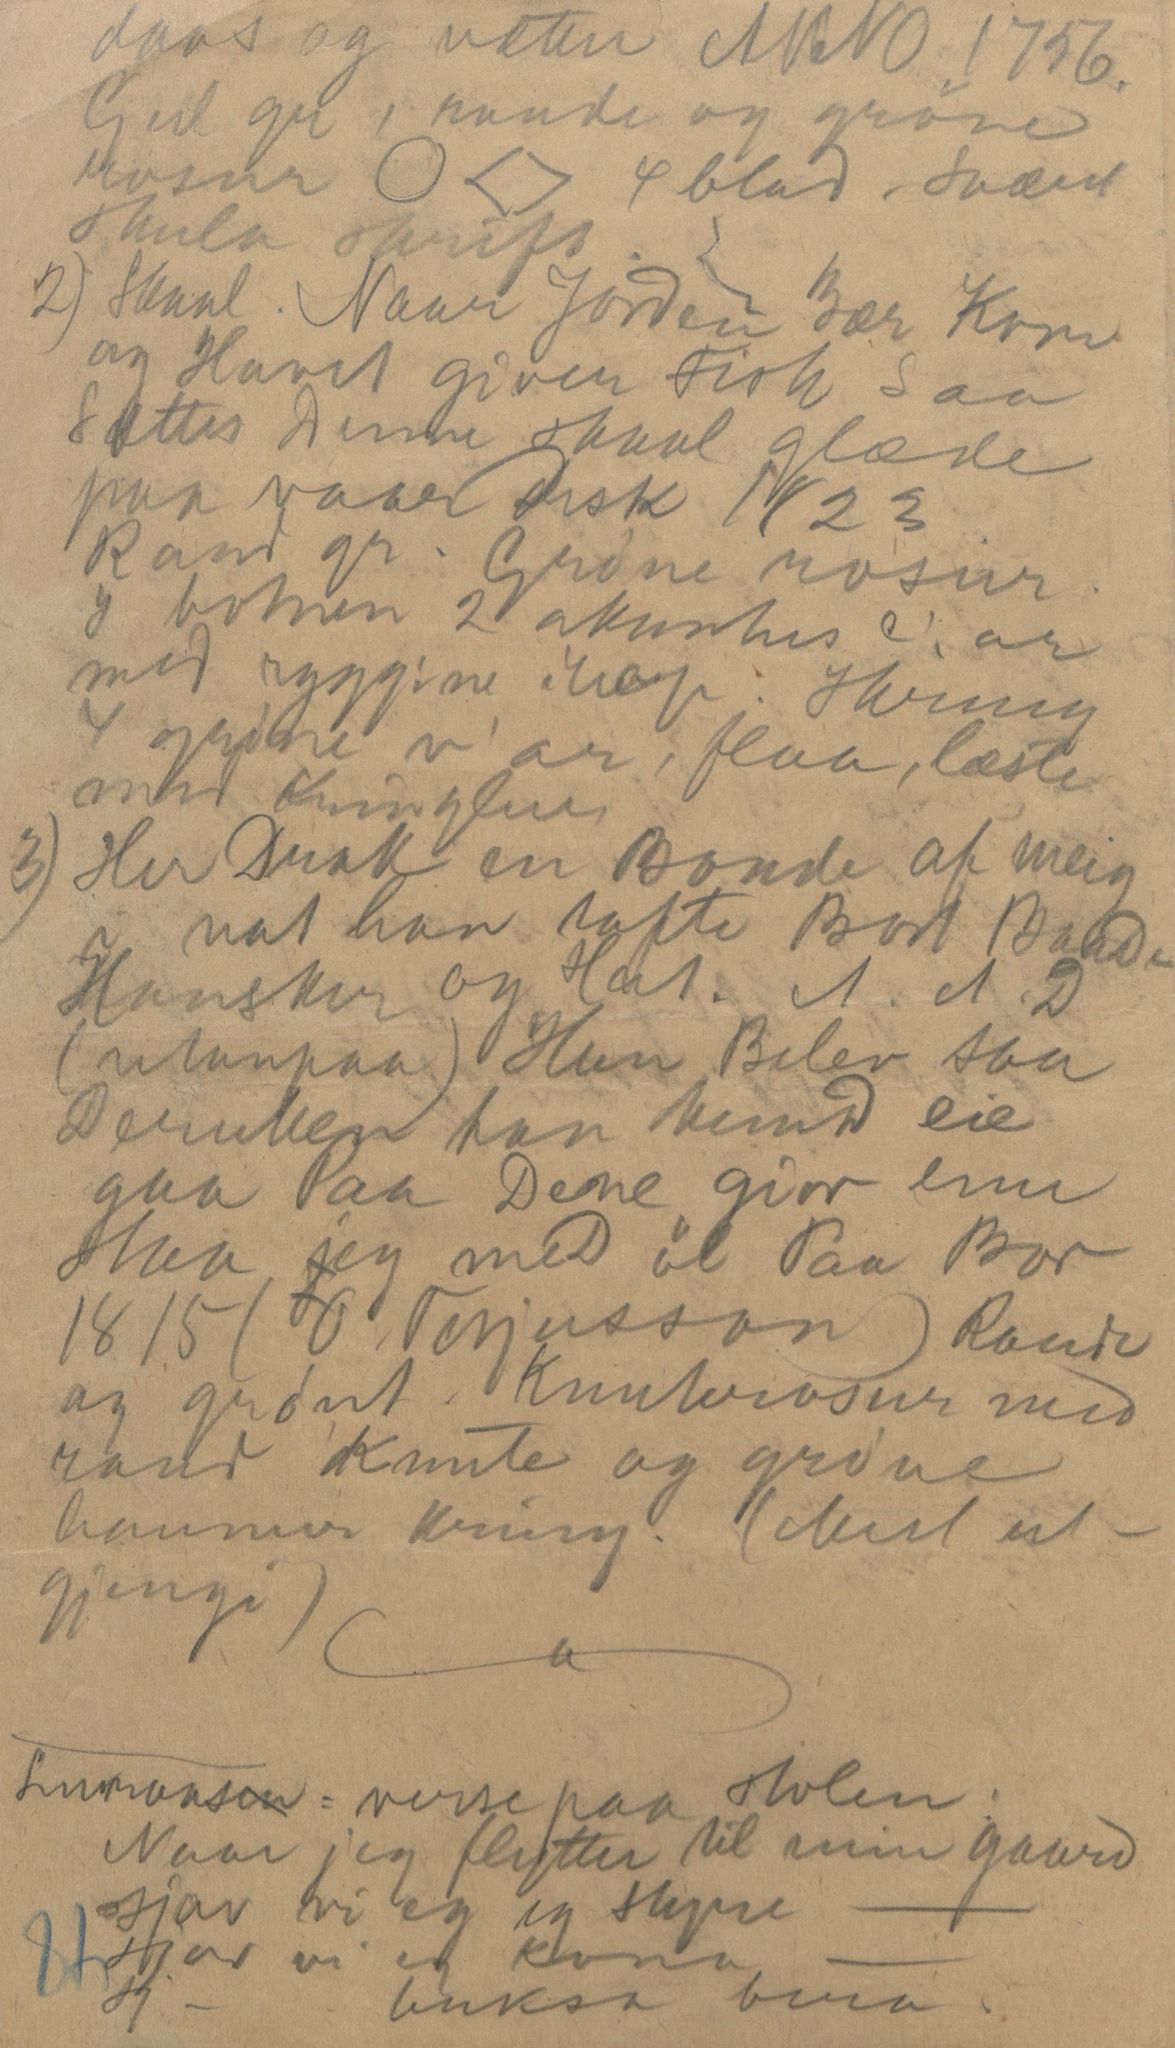 daas og vætter ANNO 1756.
Gul gr, raude og gröne
rosur 4 blad. Svært
skula skrift.
2) Skaal. Naar Jorden Bær Korn
og Havet giver Fisk Saa
Sættes Denne skaal glæde
paa vaaer Disk 1823
Raud gr. Gröne rosur.
I botnen 2 akanthus C'ar
med ryggine ihop. Kring
4 gröne v'ar, flaa, læste
med kringlur
3) Her Drak en Bonde af meig
i nat han tafte Bort Baade
Hansker og Hat. A. A. D
(utanpaa) Han Blev saa
Drukken han kund eie
gaa Paa Dene giør enn
staa jeg med öl Paa Bor
1815 (O Torjusson) Raude
og grönt. Knuterosur med
raud knute og gröne
kring. (Mest ut-
gjengi)
= verse paa stolen.
Naar jeg flytter til min gaard
sjav vi eg eg skyre
sjav vi eg kona
sj - buksa bera.